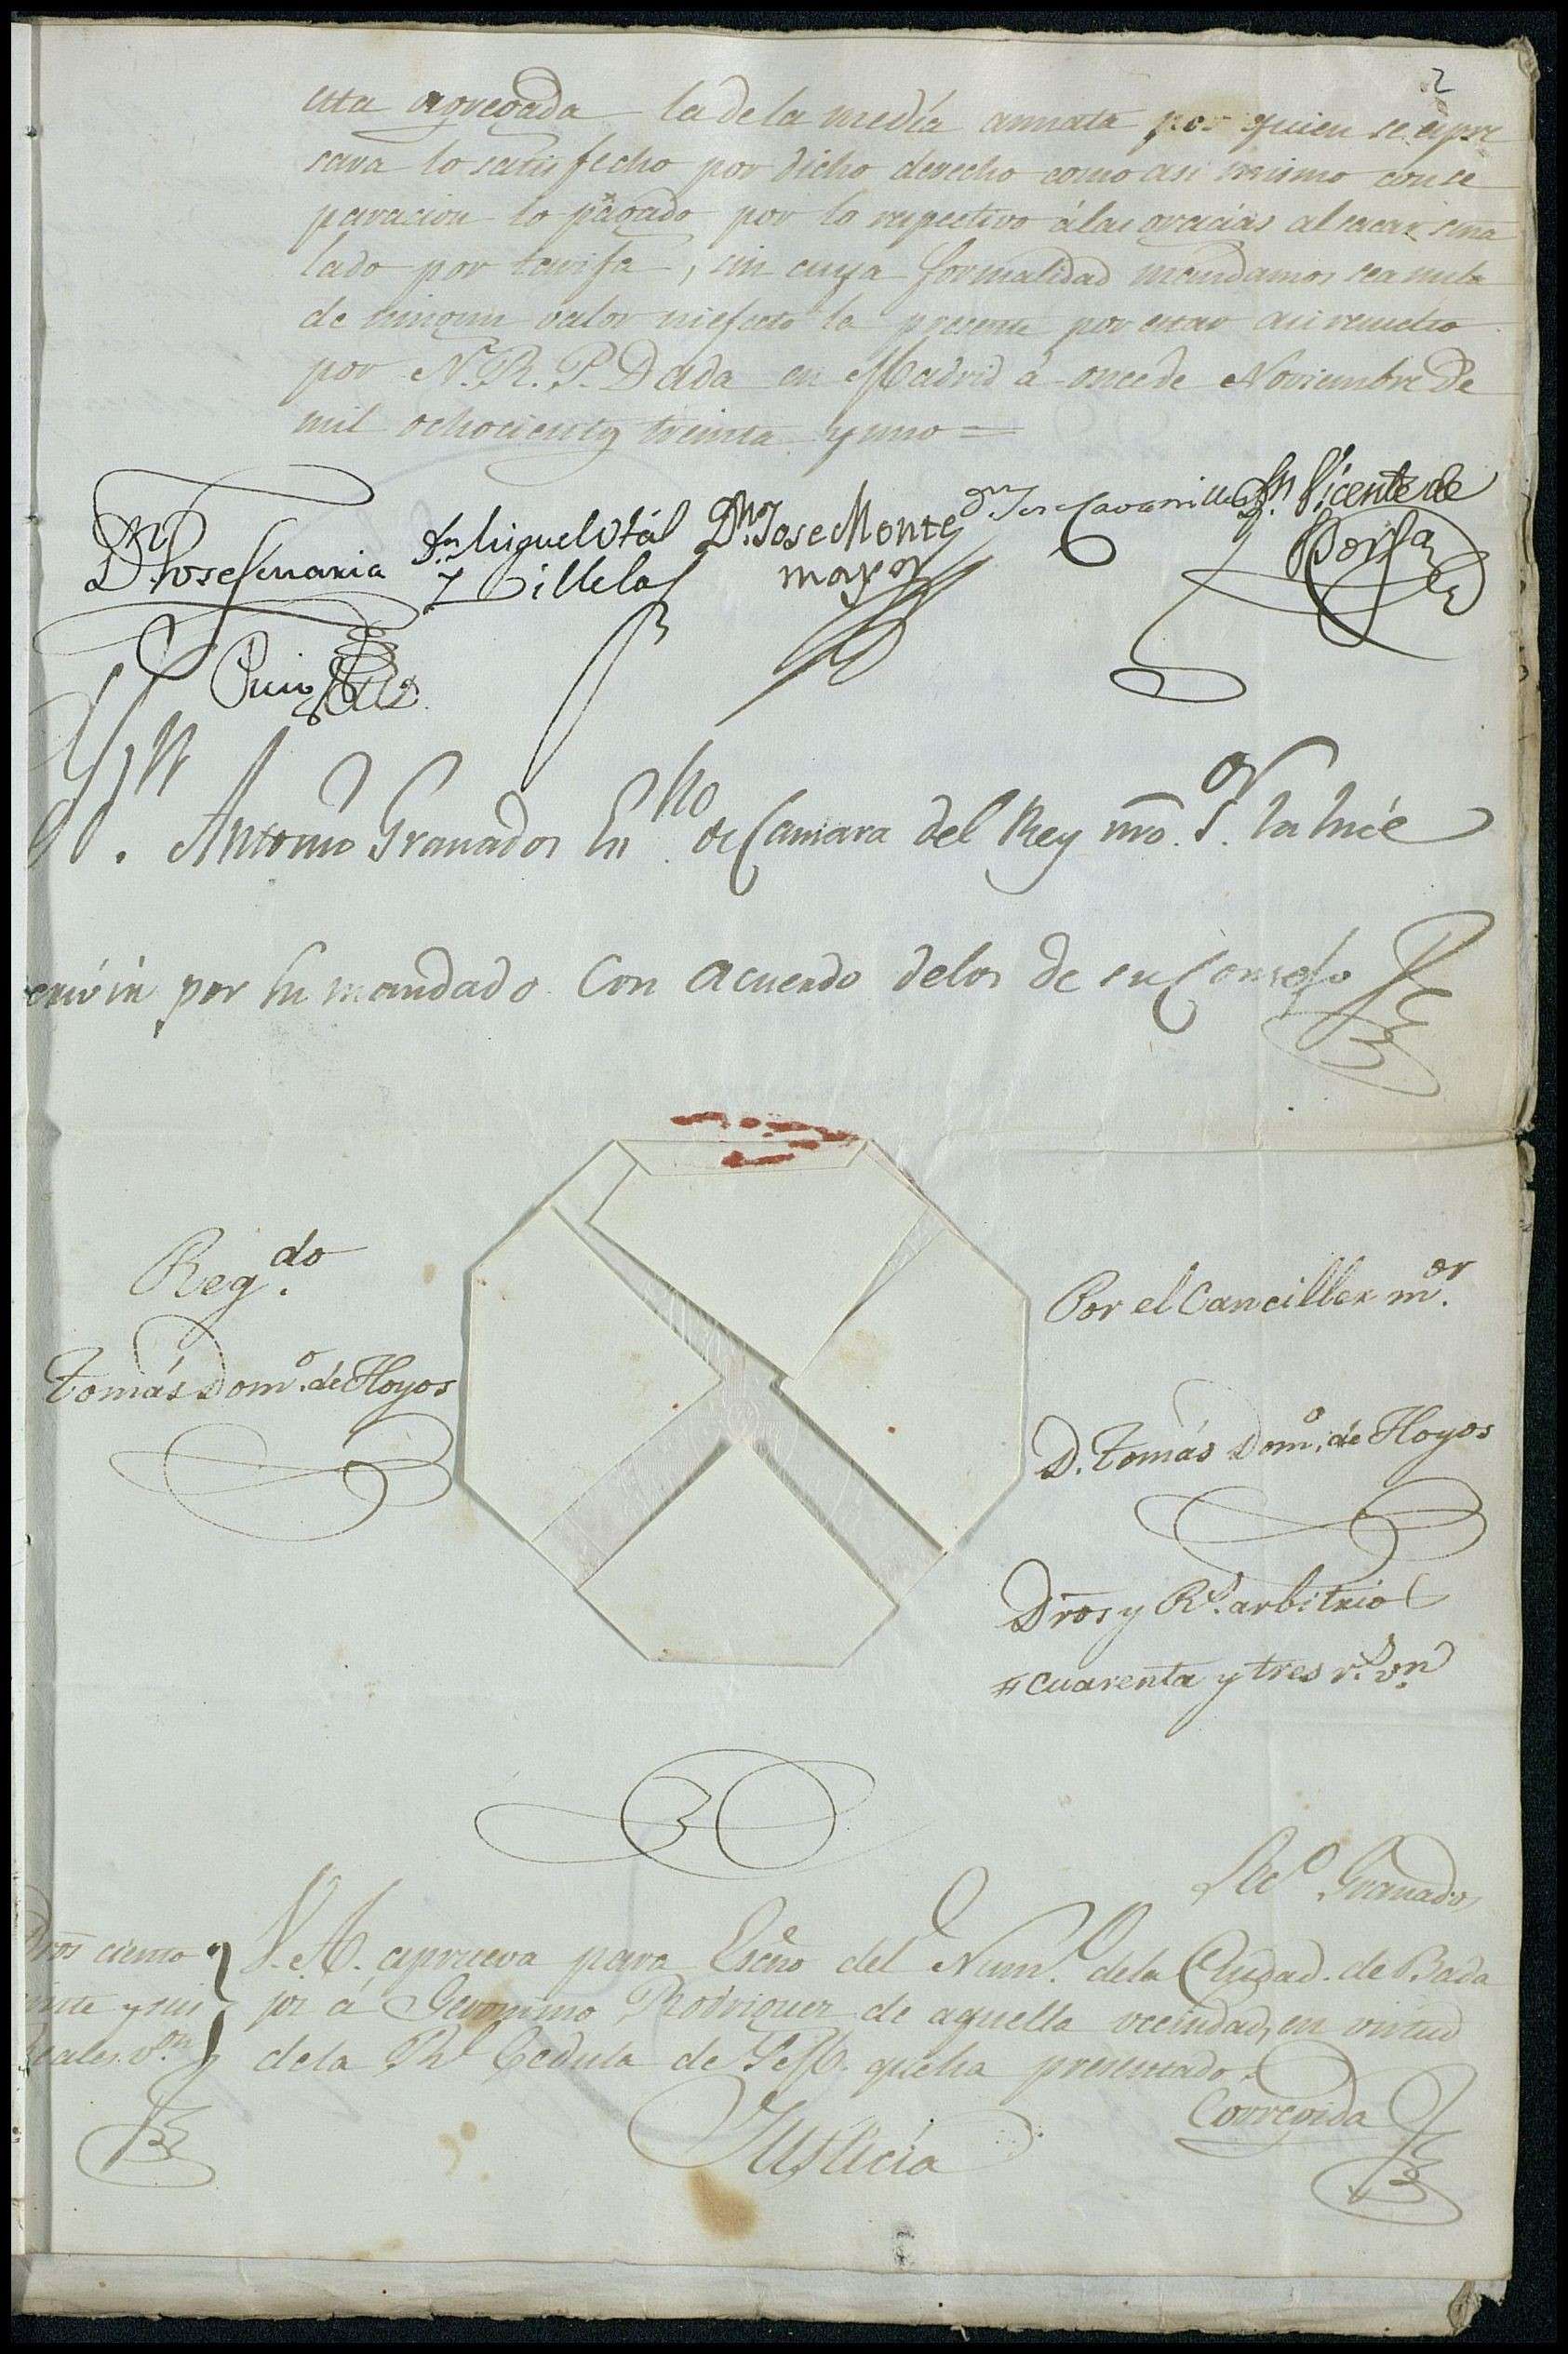 2
esta agregada la dela media annata por quien se expre
sara lo satisfecho por dicho derecho como asi mismo con se
paracion lo pagado por lo respectivo á las gracias al sacar seña
lado por tarifa, sin cuya formalidad mandamos sea nula
de ningun valor ni efecto la presente por estar asi resuelto
por N. R. P. Dada en Madrid á once de Noviembre de
mil ochocientos treinta y uno =
Dn. Jose Maria Puig
Dn. Miguel Otál y Villela
Dn. Jose Montemayor
Dn. Jose Cavanilles
Dn. Vicente de Borja
Dn. Antonio Granados Essno. de Camara del Rey nro. Sor. la hice
escrivir por su mandado Con Acuerdo delos de su Consejo
Regdo.
Tomás Domo. de Hoyos
Por el Canciller mor.
D. Tomás Domo. de Hoyos
Dros y Rl. arbitrio
# cuarenta y tres rs. vn.
Secro. Granados
Dros ciento
veinte y seis
reales von.
V. A. aprueva para Escno del Numo. dela Ciudad de Bada
joz á Geronimo Rodriguez de aquella vecindad, en virtud
dela Rl. Cedula de S. M. que ha presentado.
Corregida
Justicia